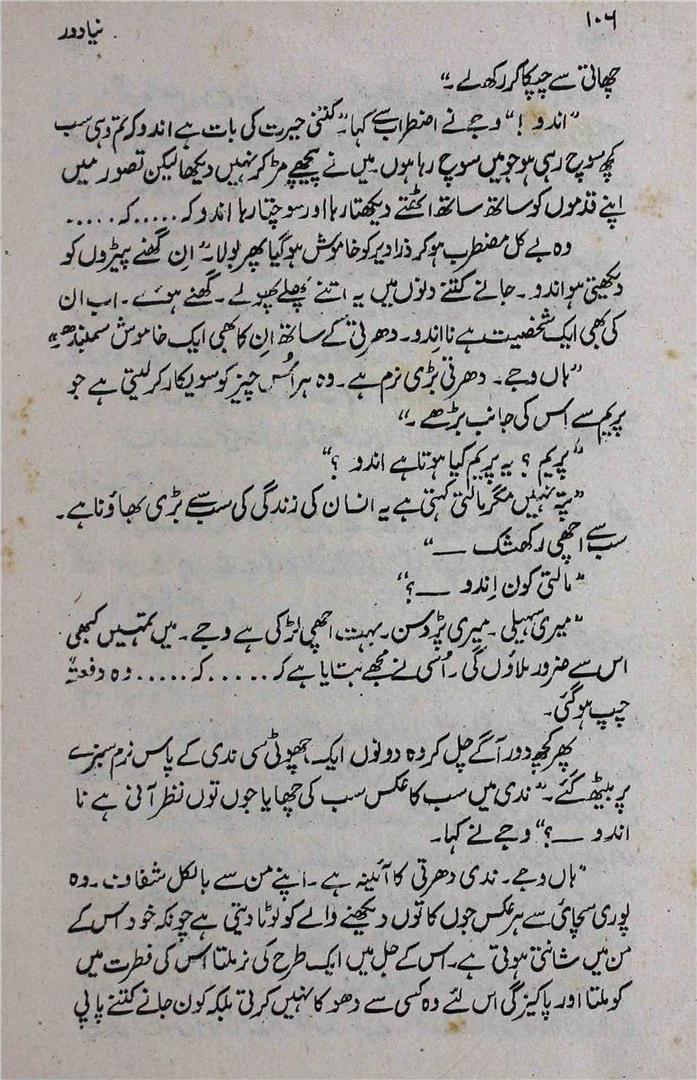 ۱۰۶
نیا دور
چھاتی سے چپکا کر رکھ لے۔“
”اندو!“ وجے نے اضطراب سے کہا۔ ”کتنی حیرت کی بات ہے اندو کہ تم وہی سب
کچھ سوچ رہی ہو جو میں سوچ رہا ہوں۔ میں نے پیچھے مڑ کر نہیں دیکھا لیکن تصور میں
اپنے قدموں کو ساتھ ساتھ اٹھتے دیکھتا رہا اور سوچتا رہا اندو کہ ..... کہ .....
وہ بے کل مضطرب ہو کر ذرا دیر کو خاموش ہو گیا پھر بولا۔ ”اِن گھنے پیڑوں کو
دیکھتی ہو اندو۔ جانے کتنے دنوں میں یہ اتنے پھلے پھولے۔ گھنے ہوئے۔ اب ان
کی بھی ایک شخصیت ہے نا اِندو۔ دھرتی کے ساتھ اِن کا بھی ایک خاموش سمبندھ ہے
”ہاں وجے۔ دھرتی بڑی نرم ہے۔ وہ ہر اُس چیز کو سویکار کر لیتی ہے جو
پریم سے اس کی جانب بڑھے۔“
”پریم؟ یہ پریم کیا ہوتا ہے اندو؟“
”پتہ نہیں مگر مالتی کہتی ہے یہ انسان کی زندگی کی سب سے بڑی بھاؤنا ہے۔
سب سے اچھی رکھشک —“
”مالتی کون اِندو —؟“
”میری سہیلی۔ میری پڑوسن۔ بہت اچھی لڑکی ہے وجے۔ میں تمہیں کبھی
اس سے ضرور ملاؤں گی۔ اُسی نے مجھے بتایا ہے کہ ..... کہ ..... وہ دفعتہً
چپ ہو گئی۔
پھر کچھ دور آگے چل کر وہ دونوں ایک چھوٹی سی ندی کے پاس نرم سبزے
پر بیٹھ گئے۔ ”ندی میں سب کا عکس سب کی چھایا جوں توں نظر آتی ہے نا
اندو —؟“ وجے نے کہا۔
”ہاں وجے۔ ندی دھرتی کا آئینہ ہے۔ اپنے من سے بالکل شفاف۔ وہ
پوری سچائی سے ہر عکس جوں کا توں دیکھنے والے کو لوٹا دیتی ہے چونکہ خود اس کے
من میں شانتی ہوتی ہے۔ اس کے جل میں ایک طرح کی نرملتا اس کی فطرت میں
کوملتا اور پاکیزگی اس لئے وہ کسی سے دھوکا نہیں کرتی بلکہ کون جانے کتنے پاپی